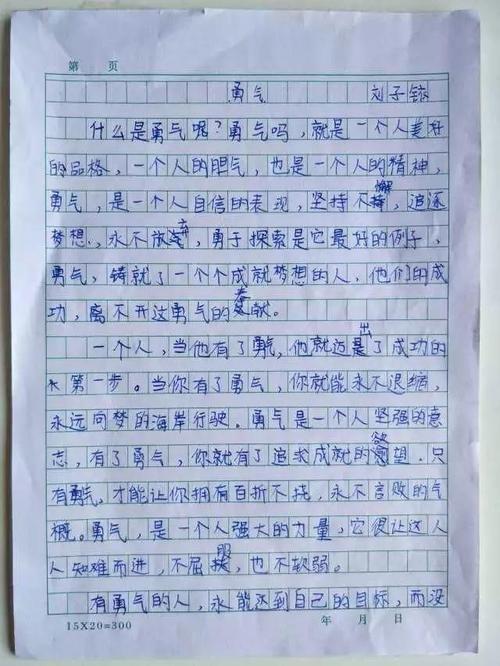 第 页
勇气 刘子铱
什么是勇气呢？勇气吗，就是一个人美好
的品格，一个人的胆气，也是一个人的精神，
勇气，是一个人自信的表现，坚持不懈，追逐
梦想，永不放弃，勇于探索是它最好的例子，
勇气，铸就了一个个成就梦想的人，他们的成
功，离不开这勇气的奉献。
一个人，当他有了勇气，他就迈出了成功的
第一步。当你有了勇气，你就能永不退缩，
永远向梦的海岸行驶。勇气是一个人坚强的意
志，有了勇气，你就有了追求成就的欲望．只
有勇气，才能让你拥有百折不挠，永不言败的气
概。勇气，是一个人强大的力量，它很让这人
人知难而进，不屈服，也不软弱。
有勇气的人，永能达到自己的目标，而没
15X20=300 年 月 日